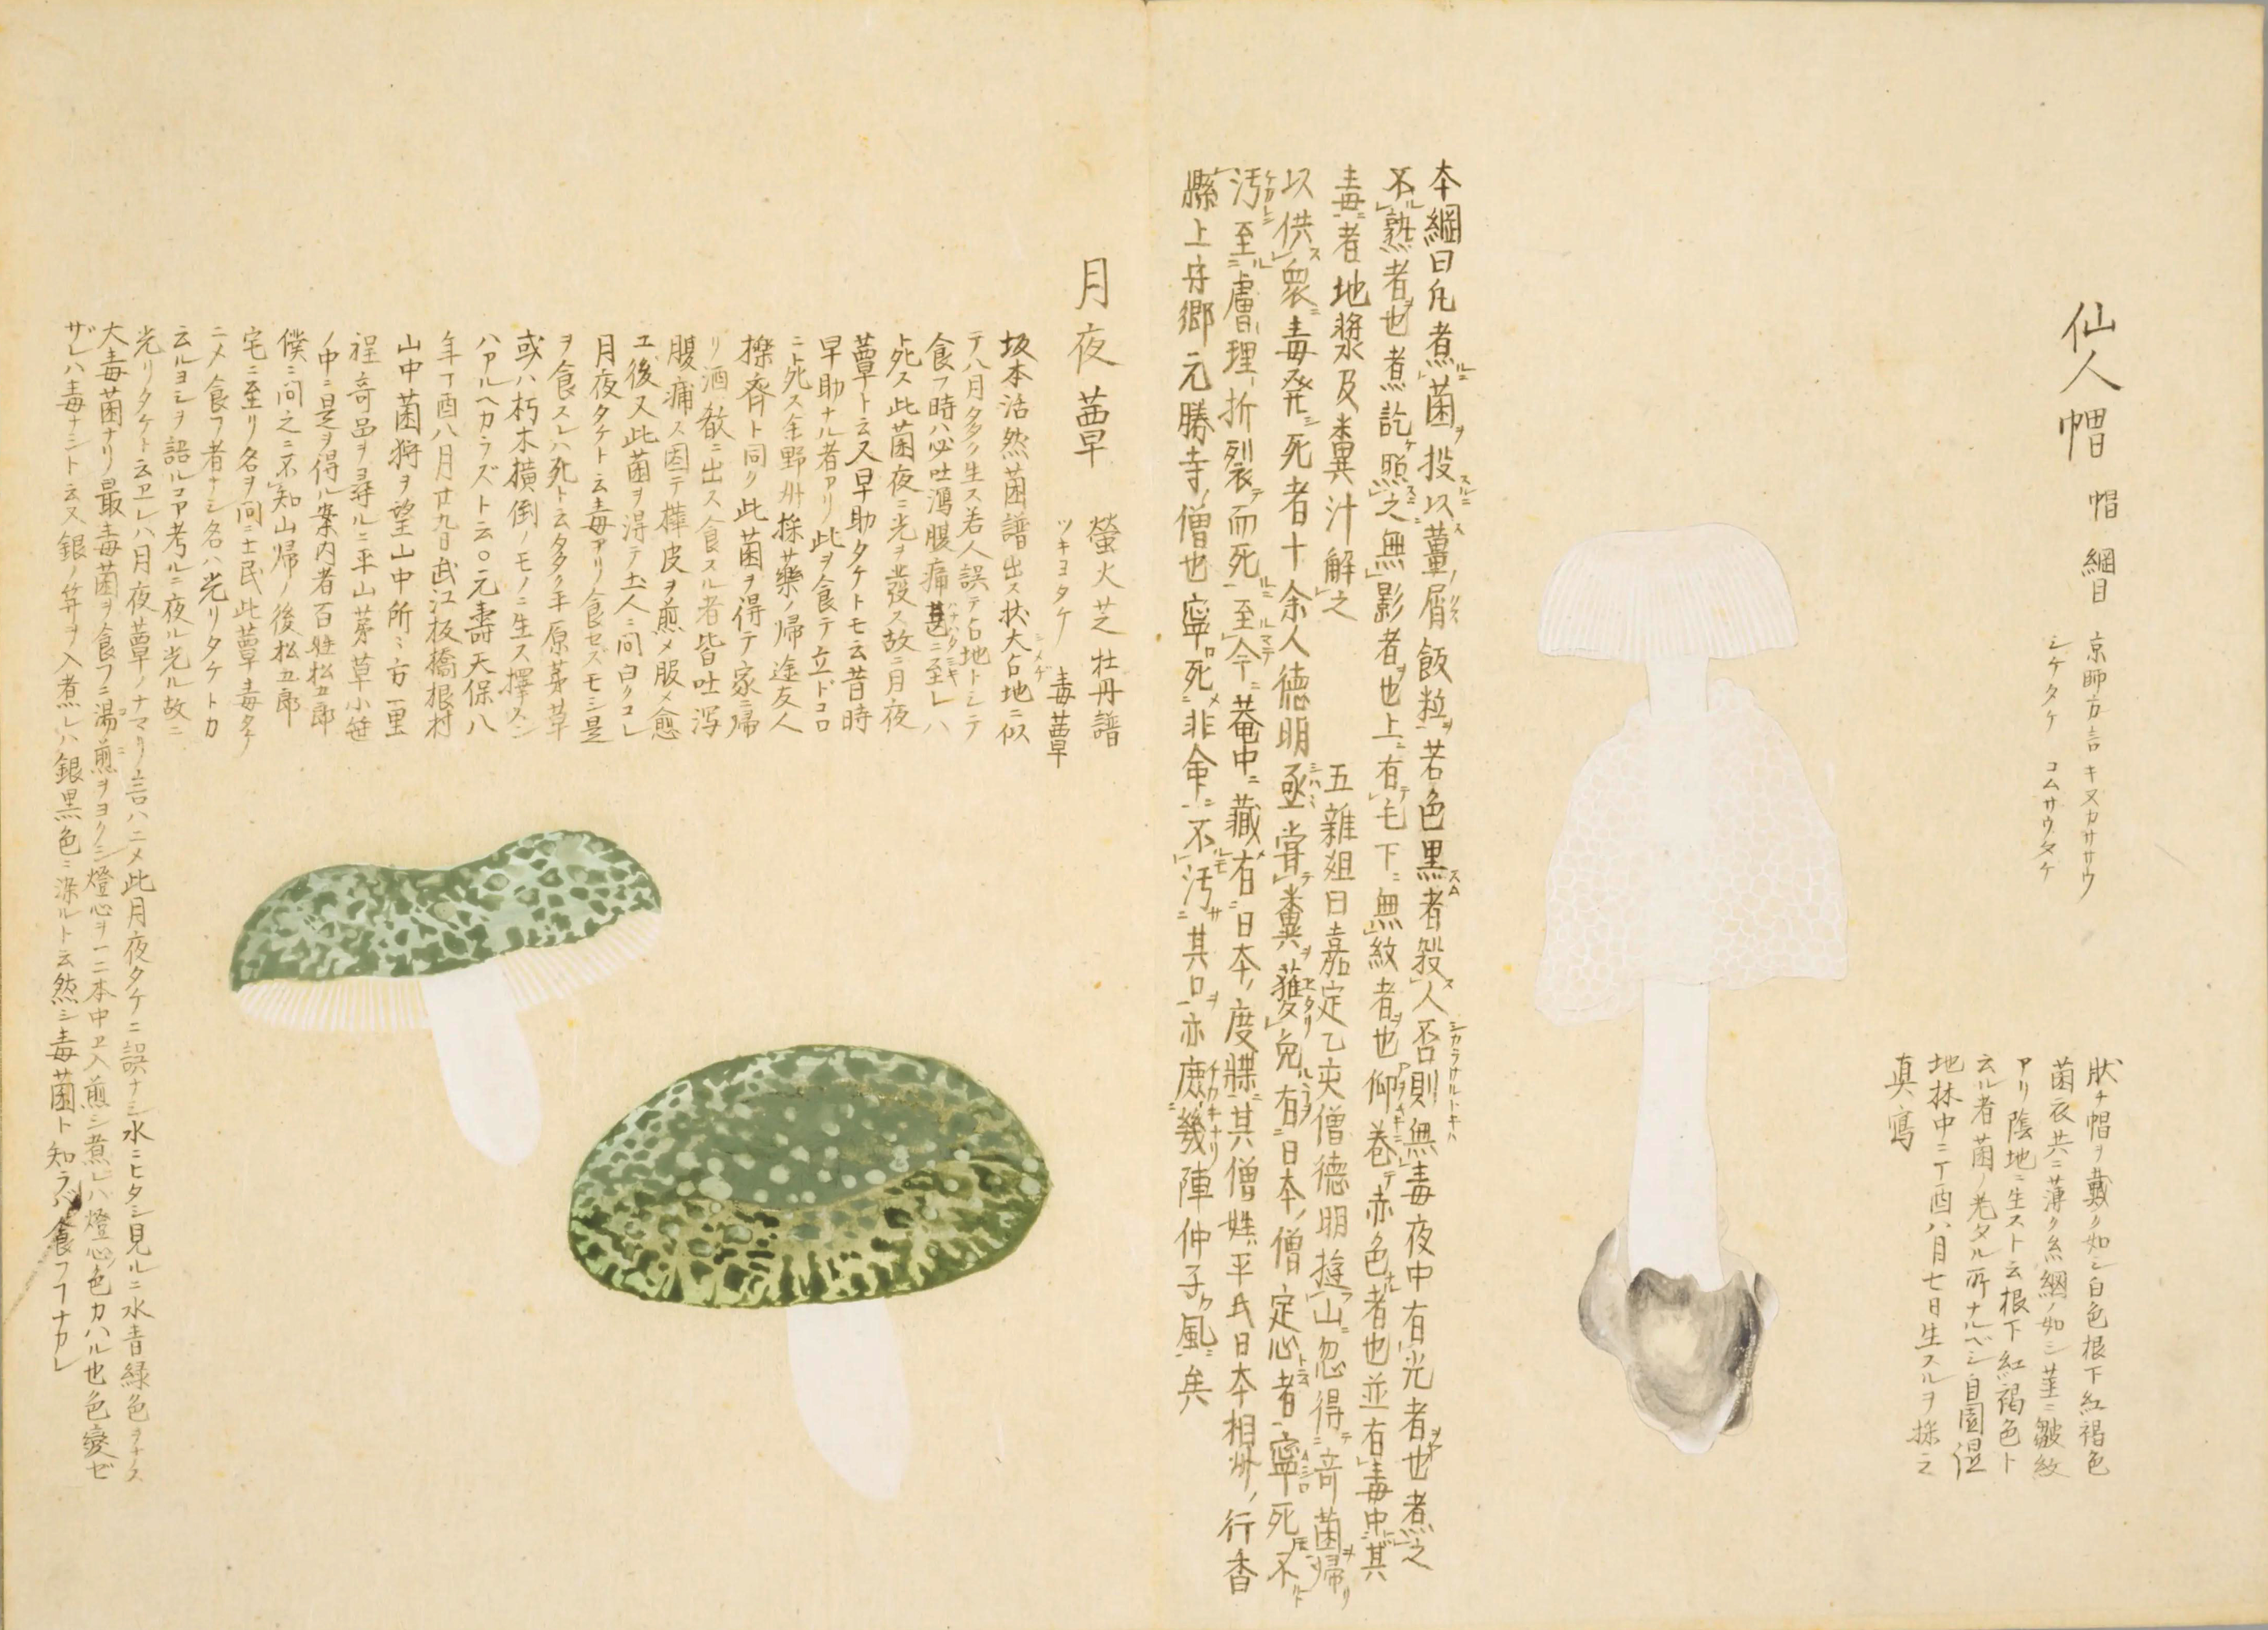 仙人帽 帽 綱目 京師方言 キヌカササウ
シケタケ コムサウタケ
状チ帽ヲ戴ク如シ白色根下紅褐色
菌衣共ニ薄ク糸網ノ如シ茎ニ皺紋
アリ陰地ニ生スト云根下紅褐色ト
云ル者菌ノ老タル所ナルベシ自園湿
地林中ニ丁酉八月七日生スルヲ採之
真寫
本綱曰凡煮菌投以薑屑飯粒若色黒者殺人否則無毒夜中有光者也煮之
不熟者也煮訖照之無影者也上有毛下無紋者也仰巻赤色者也並有毒中其
毒者地漿及糞汁解之
五雜爼曰嘉定乙亥僧徳明遊山忽得奇菌歸
以供衆毒発死者十余人徳明亟嘗糞獲免有日本僧定心者寧死不
汚至膚理折裂而死至今菴中藏有日本度牒其僧姓平氏日本相州行香
縣上守郷元勝寺僧也寧死非命不汚其口亦庶幾陳仲子風矣
月夜蕈 螢火芝 牡丹譜
ツキヨタケ 毒蕈
坂本浩然菌譜出ス状大占地ニ似
テ八月多ク生ス若人誤テ占地トシテ
食フ時ハ必吐瀉腹痛甚ニ至レハ
ト死ス此菌夜ニ光ヲ發ス故ニ月夜
蕈ト云又早助タケトモ云昔時
早助ナル者アリ此ヲ食テ立ドコロ
ニト死ス余野州採藥ノ帰途友人
擽齊ト同ク此菌ヲ得テ家ニ帰
リ酒殽ニ出ス食スル者皆吐瀉
腹痛ス因テ樺皮ヲ煎メ服メ愈
エ後又此菌ヲ得テ土人ニ問曰クコレ
月夜タケト云毒アリ食セズモシ是
ヲ食スレハ死ト云多ク平原茅草
或ハ朽木横倒ノモノニ生ス擇ズン
ハアルヘカラズト云○元壽天保八
年丁酉八月廿九日武江板橋根村
山中菌狩ヲ望山中所々方一里
程奇品ヲ尋ルニ平山茅草小笹
ノ中ニ是ヲ得ル案内者百姓松五郎
僕ニ問之ニ不知山帰ノ後松五郎
宅ニ至リ名ヲ問ニ土民此蕈毒タケ
ニメ食フ者ナシ名ハ光リタケトカ
云ルヨシヲ語ルコア考ルニ夜ル光ル故ニ
光リタケト云ヱレハ月夜蕈ノナマリ言ハニメ此月夜タケニ誤ナシ水ニヒタシ見ルニ水青緑色ヲナス
大毒菌ナリ最毒菌ヲ食フニ湯煎ヲヨクシ燈心ヲ一二本中ヱ入煎シ煮レハ燈心色カハル也色変ゼ
ザレハ毒ナシト云又銀ノ笄ヲ入煮レハ銀黒色ニ染ルト云然シ毒菌ト知ラバ食フコナカレ